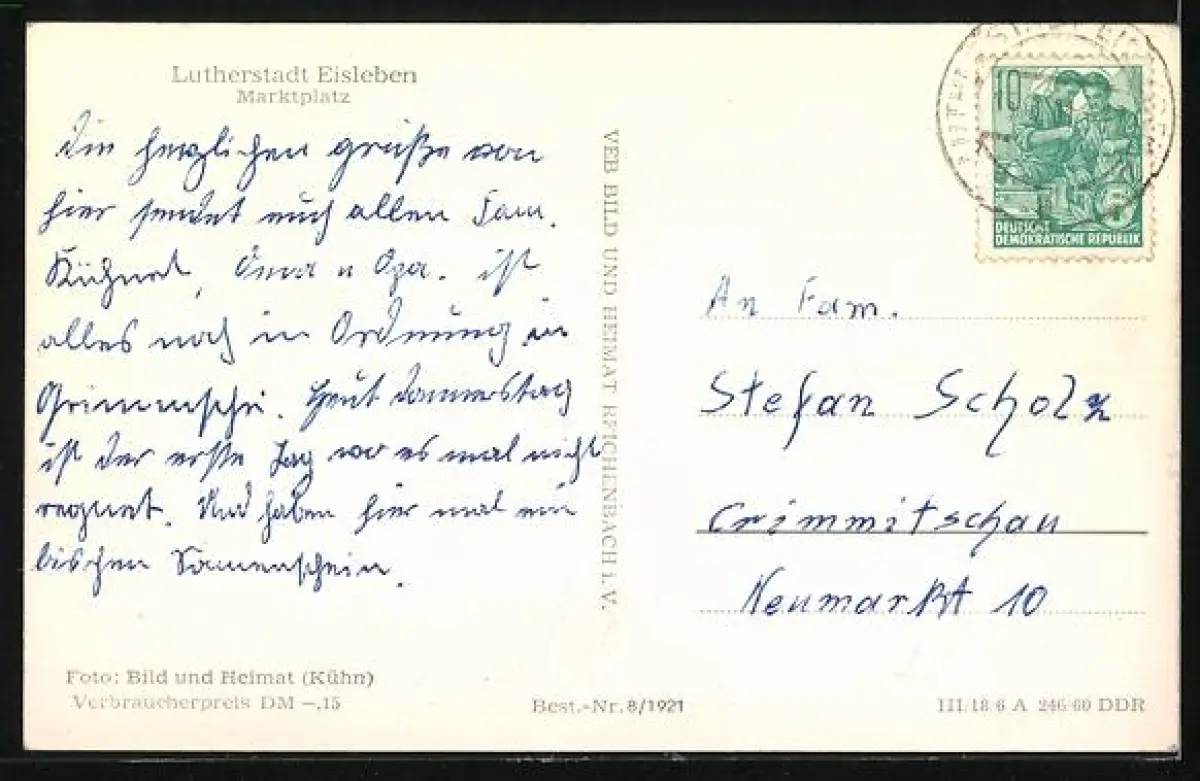 Lutherstadt Eisleben
Marktplatz
Die herzlichen grüße von
hier sendet euch allen Fam.
Kühnel, Oma u Opa. ist
alles noch in Ordnung in
Heut donnerstag
ist der erste Tag wo es mal nicht
regnet. Und haben hier mal ein
bischen Sonnenschein.
Foto: Bild und Heimat (Kühn)
Verbraucherpreis DM –.15
VEB BILD UND HEIMAT REICHENBACH i. V.
Best.-Nr. 8/1921
10
5
DEUTSCHE
DEMOKRATISCHE REPUBLIK
An Fam.
Stefan Scholz
Crimmitschau
Neumarkt 10
III/18/6 A 246/60 DDR